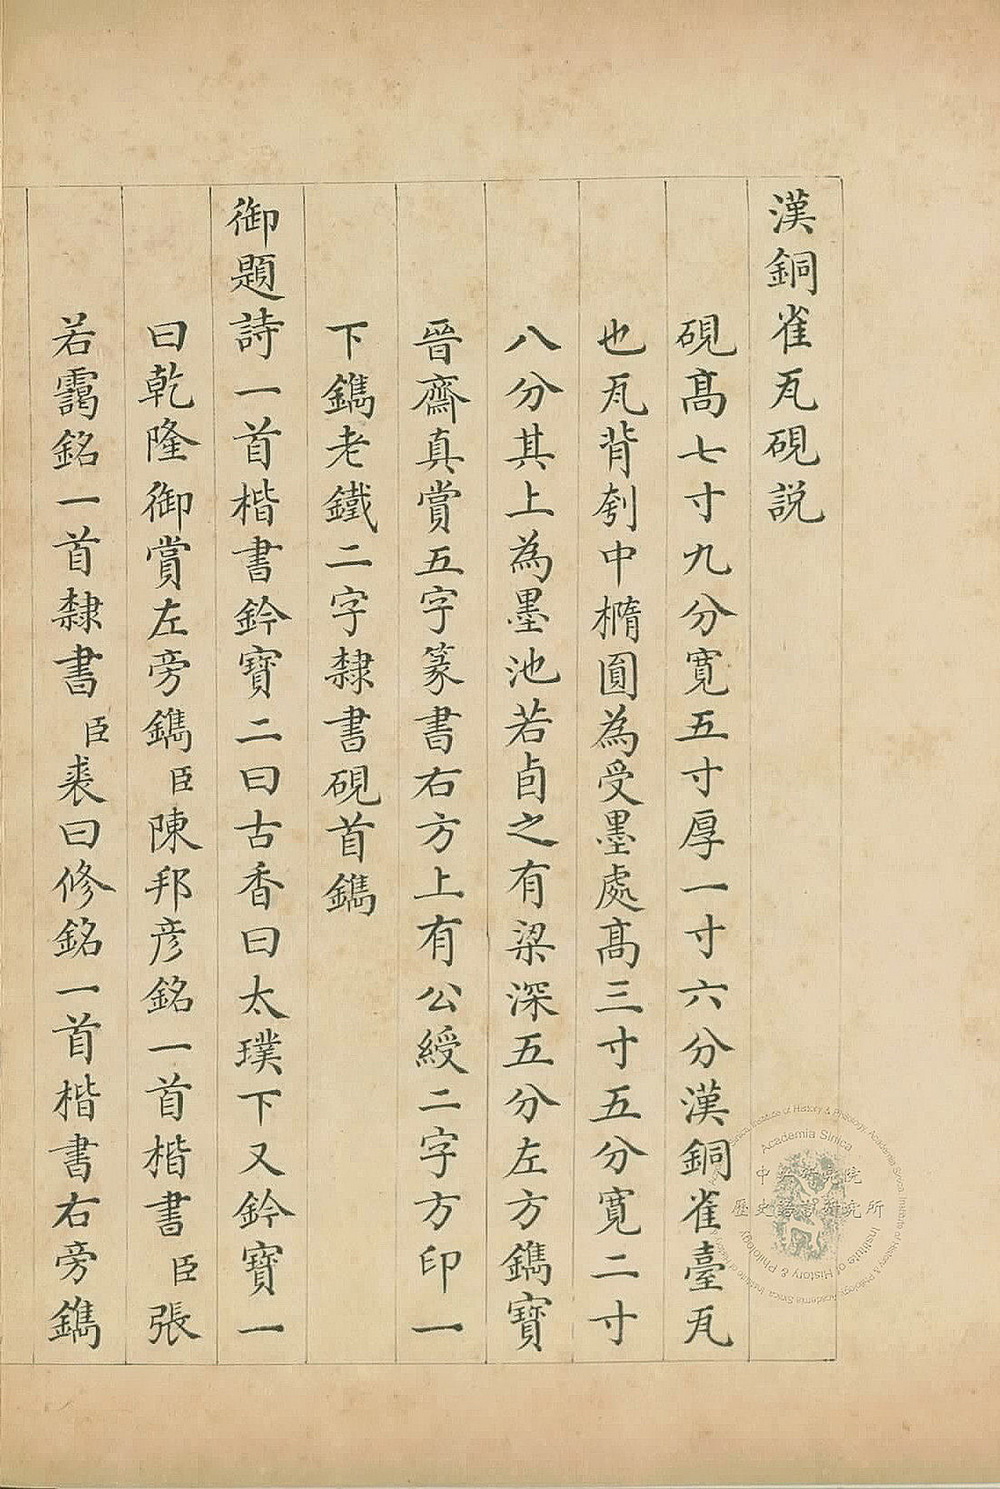 漢銅雀瓦硯説
硯髙七寸九分寛五寸厚一寸六分漢銅雀臺瓦
也瓦背刳中橢圓為受墨處髙三寸五分寛二寸
八分其上為墨池若卣之有梁深五分左方鐫寶
晉齋真賞五字篆書右方上有公綬二字方印一
下鐫老鐵二字隸書硯首鐫
御題詩一首楷書鈐寶二曰古香曰太璞下又鈐寶一
曰乾隆御賞左旁鐫臣陳邦彦銘一首楷書臣張
若靄銘一首隸書臣裘曰修銘一首楷書右旁鐫
中央研究院
歷史語言研究所
Academia Sinica
Institute of History & Philology